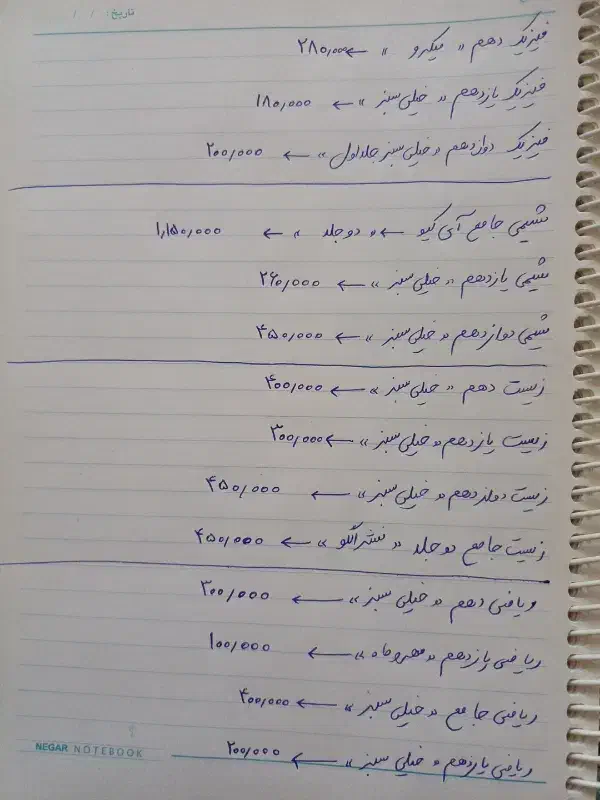 تاریخ: / /
فیزیک دهم « میکرو » ← ۲۸۰,۰۰۰
فیزیک یازدهم « خیلی سبز » ← ۱۸۰,۰۰۰
فیزیک دوازدهم « خیلی سبز جلد اول » ← ۲۰۰,۰۰۰
شیمی جامع آی کیو ← « دو جلد » ← ۱,۱۵۰,۰۰۰
شیمی یازدهم « خیلی سبز » ← ۲۶۰,۰۰۰
شیمی دوازدهم « خیلی سبز » ← ۴۵۰,۰۰۰
زیست دهم « خیلی سبز » ← ۴۰۰,۰۰۰
زیست یازدهم « خیلی سبز » ← ۳۰۰,۰۰۰
زیست دوازدهم « خیلی سبز » ← ۴۵۰,۰۰۰
زیست جامع دو جلد « نشر الگو » ← ۴۵۰,۰۰۰
ریاضی دهم « خیلی سبز » ← ۳۰۰,۰۰۰
ریاضی یازدهم « مهروماه » ← ۱۰۰,۰۰۰
ریاضی جامع « خیلی سبز » ← ۴۰۰,۰۰۰
ریاضی یازدهم « خیلی سبز » ← ۲۰۰,۰۰۰
NEGAR NOTEBOOK